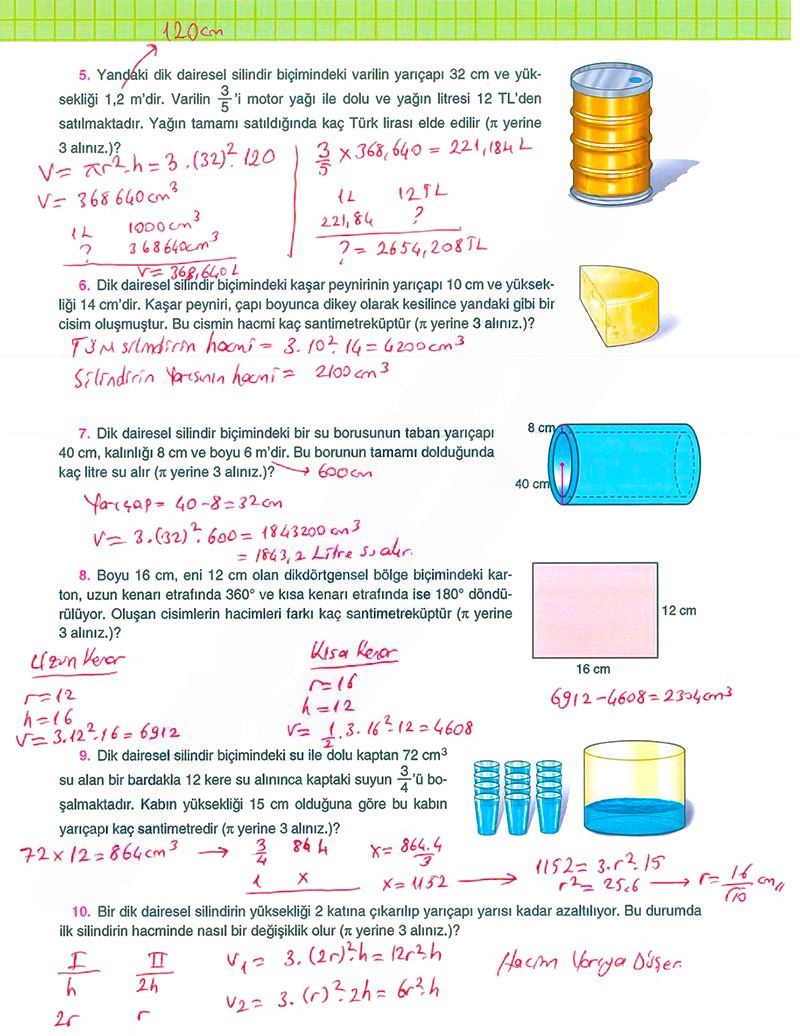 120cm
5. Yandaki dik dairesel silindir biçimindeki varilin yarıçapı 32 cm ve yük-
sekliği 1,2 m'dir. Varilin 3/5 'i motor yağı ile dolu ve yağın litresi 12 TL'den
satılmaktadır. Yağın tamamı satıldığında kaç Türk lirası elde edilir (π yerine
3 alınız.)?
V = πr²·h = 3·(32)²·120
V = 368640cm³
1L 1000cm³
? 368640cm³
V = 368,640L
3/5 x 368,640 = 221,184L
1L 12TL
221,84 ?
? = 2654,208TL
6. Dik dairesel silindir biçimindeki kaşar peynirinin yarıçapı 10 cm ve yüksek-
liği 14 cm'dir. Kaşar peyniri, çapı boyunca dikey olarak kesilince yandaki gibi bir
cisim oluşmuştur. Bu cismin hacmi kaç santimetreküptür (π yerine 3 alınız.)?
TÜM silindirin hacmi = 3·10²·14 = 4200cm³
Silindirin Yarısının hacmi = 2100cm³
7. Dik dairesel silindir biçimindeki bir su borusunun taban yarıçapı
40 cm, kalınlığı 8 cm ve boyu 6 m'dir. Bu borunun tamamı dolduğunda
kaç litre su alır (π yerine 3 alınız.)? → 600cm
8 cm
40 cm
Yarıçap = 40-8 = 32cm
V = 3·(32)²·600 = 1843200cm³
= 1843,2 Litre su alır.
8. Boyu 16 cm, eni 12 cm olan dikdörtgensel bölge biçimindeki kar-
ton, uzun kenarı etrafında 360° ve kısa kenarı etrafında ise 180° döndü-
rülüyor. Oluşan cisimlerin hacimleri farkı kaç santimetreküptür (π yerine
3 alınız.)?
12 cm
16 cm
Uzun Kenar
r=12
h=16
V=3·12²·16=6912
Kısa Kenar
r=16
h=12
V= 1/2·3·16²·12=4608
6912-4608=2304cm³
9. Dik dairesel silindir biçimindeki su ile dolu kaptan 72 cm³
su alan bir bardakla 12 kere su alınınca kaptaki suyun 3/4'ü bo-
şalmaktadır. Kabın yüksekliği 15 cm olduğuna göre bu kabın
yarıçapı kaç santimetredir (π yerine 3 alınız.)?
72x12=864cm³ →
3/4 864
1 x
x= 864·4/3
x=1152 →
1152=3·r²·15
r²=25,6 → r=16/√10 cm//
10. Bir dik dairesel silindirin yüksekliği 2 katına çıkarılıp yarıçapı yarısı kadar azaltılıyor. Bu durumda
ilk silindirin hacminde nasıl bir değişiklik olur (π yerine 3 alınız.)?
I II
h 2h
2r r
V₁= 3·(2r)²·h=12r²·h
V₂= 3·(r)²·2h=6r²·h
Hacim Yarıya Düşer.